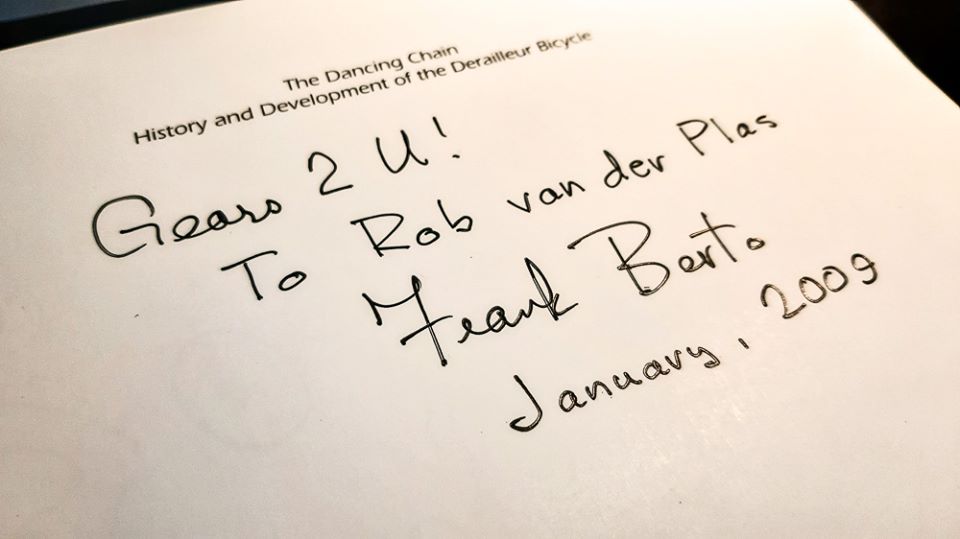 The Dancing Chain
History and Development of the Derailleur Bicycle
Gears 2 U!
To Rob van der Plas
Frank Berto
January, 2009